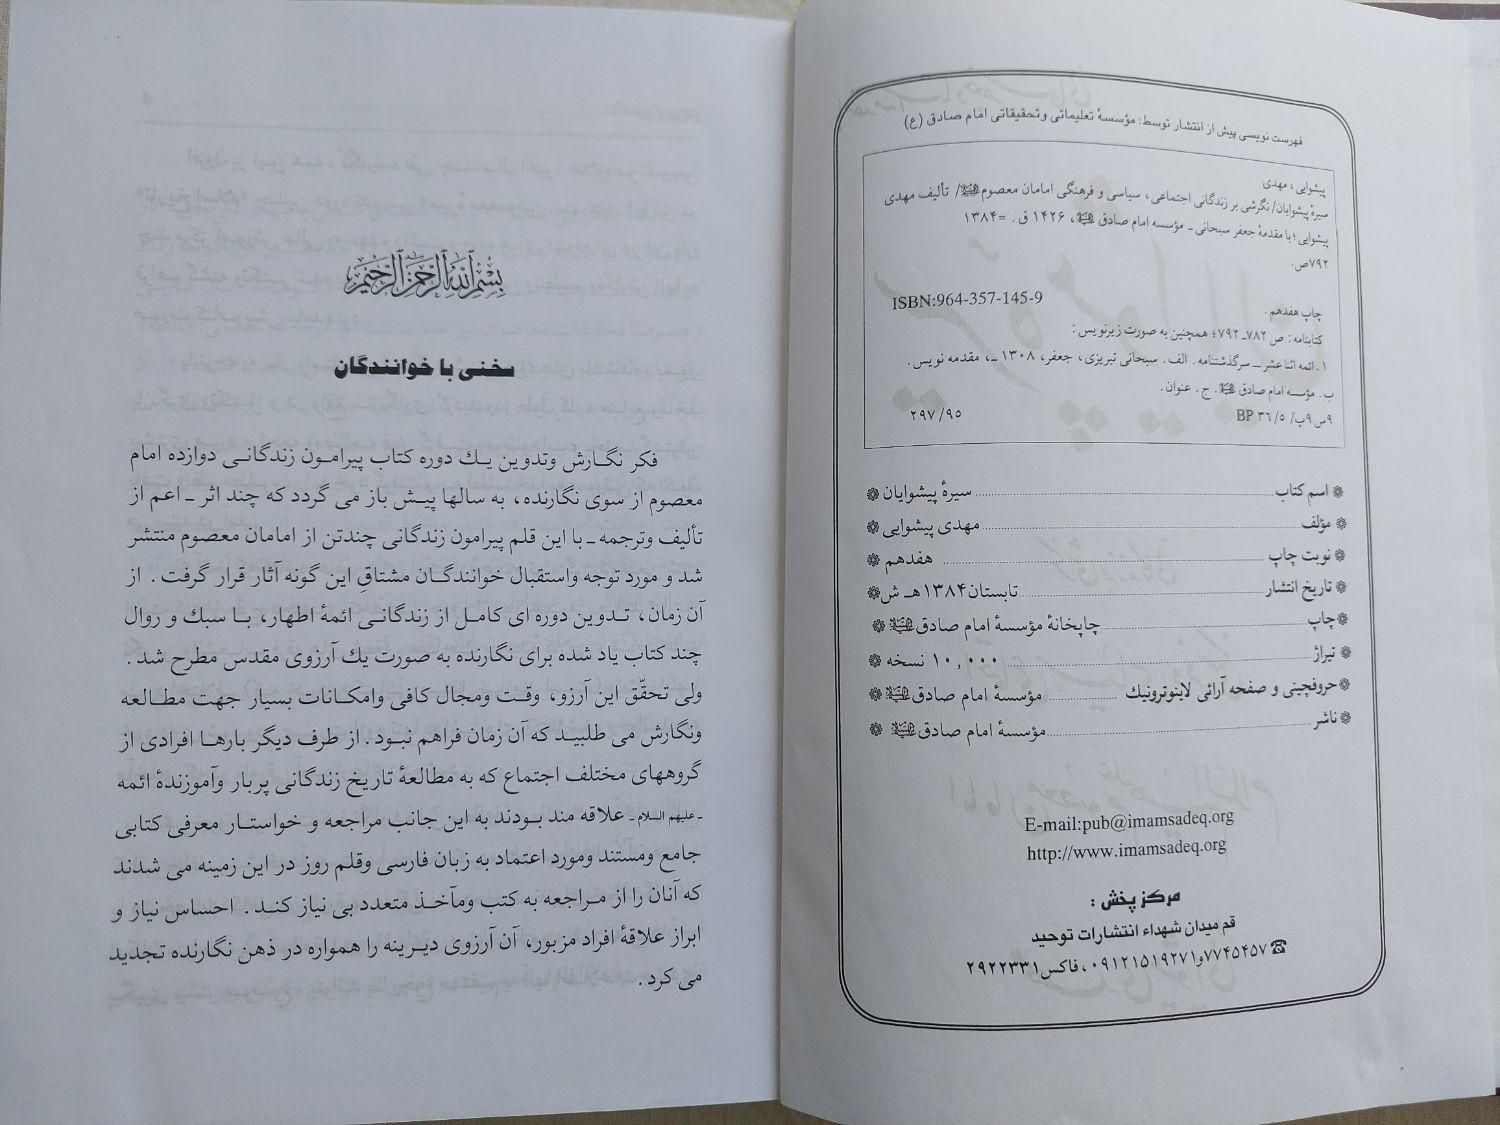 فهرست نویسی پیش از انتشار توسط: مؤسسهٔ تعلیماتی و تحقیقاتی امام صادق (ع)
پیشوایی، مهدی
سیرهٔ پیشوایان/ نگرشی بر زندگانی اجتماعی، سیاسی و فرهنگی امامان معصوم علیهم السلام/ تألیف مهدی
پیشوایی؛ با مقدمهٔ جعفر سبحانی ـ مؤسسه امام صادق علیه السلام، ۱۴۲۶ ق. = ۱۳۸۴
۷۹۲ص.
ISBN:964-357-145-9
چاپ هفدهم.
کتابنامه: ص ۷۸۲ـ ۷۹۲؛ همچنین به صورت زیرنویس:
۱. ائمه اثنا عشر ــ سرگذشتنامه. الف. سبحانی تبریزی، جعفر، ۱۳۰۸ ـ، مقدمه نویس.
ب. مؤسسه امام صادق علیه السلام. ج. عنوان.
۹س ۹پ/ ۵/ ۳۶ BP ۲۹۷/۹۵
❁ اسم کتاب ........ سیرهٔ پیشوایان ❁
❁ مؤلف ........ مهدی پیشوایی ❁
❁ نوبت چاپ ........ هفدهم ❁
❁ تاریخ انتشار ........ تابستان ۱۳۸۴هـ ش ❁
❁ چاپ ........ چاپخانهٔ مؤسسهٔ امام صادق علیه السلام ❁
❁ تیراژ ........ ۱۰,۰۰۰ نسخه ❁
❁ حروفچینی و صفحه آرائی لاینوترونیك ........ مؤسسهٔ امام صادق علیه السلام ❁
❁ ناشر ........ مؤسسهٔ امام صادق علیه السلام ❁
E-mail:pub@imamsadeq.org
http://www.imamsadeq.org
مرکز پخش :
قم میدان شهداء انتشارات توحید
☎ ۷۷۴۵۴۵۷و۰۹۱۲۱۵۱۹۲۷۱، فاکس۲۹۲۲۳۳۱
بسم الله الرحمن الرحیم
سخنی با خوانندگان
فکر نگـارش وتدوین یـك دوره کتاب پیرامـون زندگانـی دوازده امام
معصوم از سوی نگارنده، به سالها پیـش باز می گردد که چند اثر ـ اعم از
تألیف وترجمه ـ با این قلم پیرامون زندگانی چندتن از امامان معصوم منتشر
شد و مورد توجه واستقبال خوانندگـان مشتاقِ این گونه آثار قرار گرفت . از
آن زمان، تـدوین دوره ای کامل از زندگانـی ائمهٔ اطهار، بـا سبك و روال
چند کتاب یاد شده برای نگارنده به صورت یك آرزوی مقدس مطرح شد .
ولی تحقّق این آرزو، وقت ومجال کافی وامکـانات بسیار جهت مطـالعه
ونگارش می طلبیـد که آن زمان فراهم نبـود . از طرف دیگر بارهـا افرادی از
گروههای مختلف اجتماع که به مطالعهٔ تاریخ زندگانی پربار وآموزندهٔ ائمه
ـ علیهم السلام ـ علاقه مند بـودند به این جانب مراجعه و خواستـار معرفی کتابی
جامع ومستند ومورد اعتماد به زبان فارسی وقلم روز در این زمینه می شدند
که آنان را از مـراجعه به کتب ومآخـذ متعدد بی نیاز کنـد . احساس نیاز و
ابراز علاقهٔ افراد مزبور، آن آرزوی دیـرینه را همواره در ذهن نگارنده تجدید
می کرد .